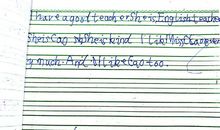 I have a good teacher She is English teacher
She is Cao She is kind I like Miss Cao very
y much. And I like Cao too.